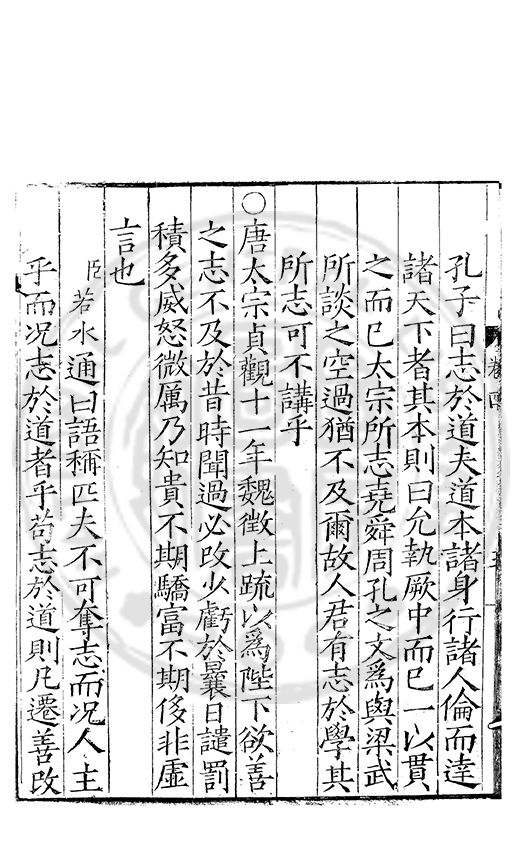 孔子曰志於道夫道本諸身行諸人倫而達
諸天下者其本則曰允執厥中而已一以貫
之而已太宗所志堯舜周孔之文爲與梁武
所談之空過猶不及爾故人君有志於學其
所志可不講乎
○唐太宗貞觀十一年魏徵上疏以爲陛下欲善
之志不及於昔時聞過必改少虧於曩日譴罰
積多威怒微厲乃知貴不期驕富不期侈非虛
言也
臣若水通曰語稱匹夫不可奪志而况人主
乎而况志於道者乎苟志於道則凡遷善改